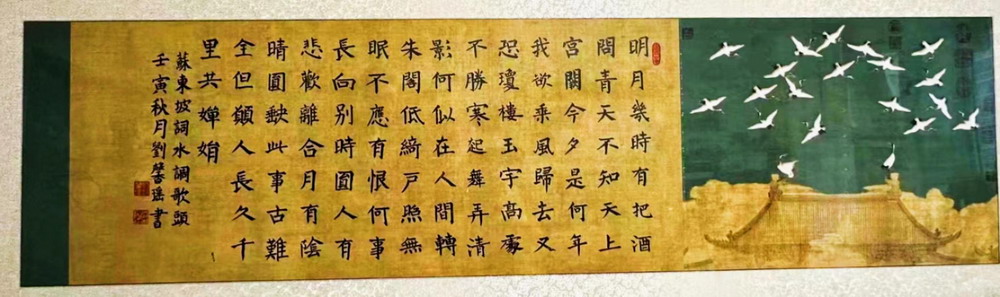 明月幾時有把酒
問青天不知天上
宮闕今夕是何年
我欲乘風歸去又
恐瓊樓玉宇高處
不勝寒起舞弄清
影何似在人間轉
朱閣低綺戶照無
眠不應有恨何事
長向別時圓人有
悲歡離合月有陰
晴圓缺此事古難
全但願人長久千
里共嬋娟
蘇東坡詞水調歌頭
壬寅秋月劉馨瑶書